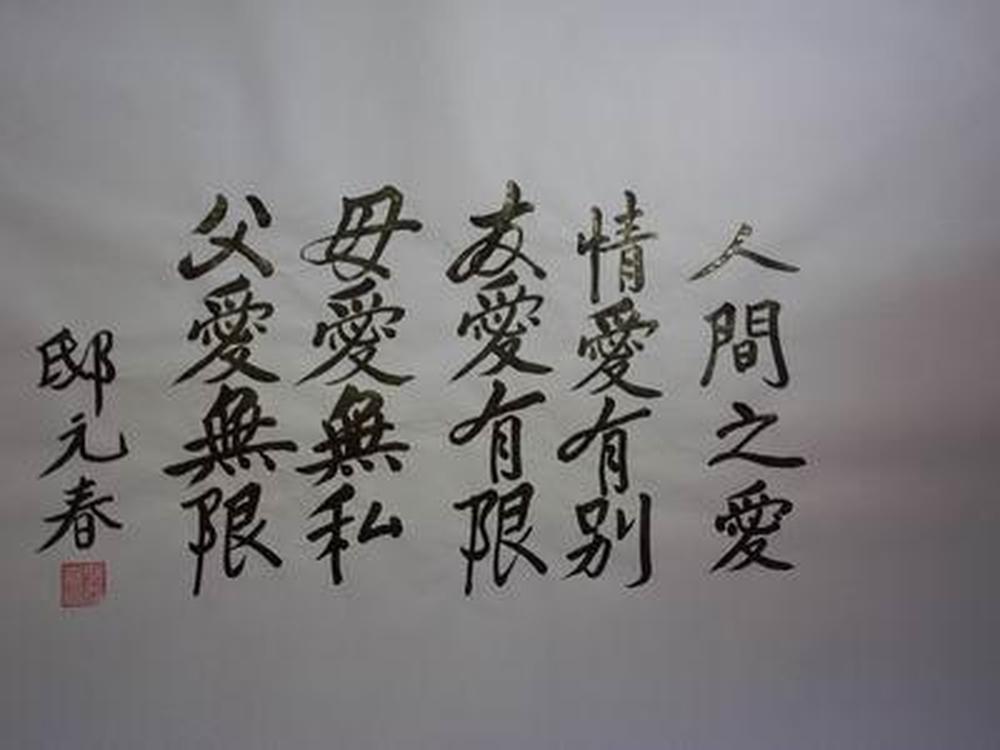 人間之愛
情愛有别
友愛有限
母愛無私
父愛無限
邸元春